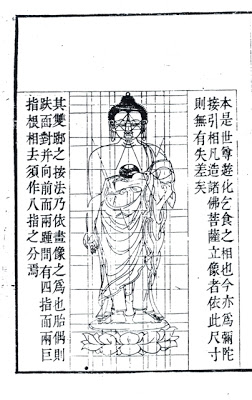 本是世尊遊化乞食之相也今亦爲彌陀
接引相凡造諸佛菩薩立像者依此尺寸
則無有失差矣
其雙腳之接法乃依畫像之爲也胎偶則
趺面對并向前而兩踵問有四指而兩巨
指根相去須作八指之分焉